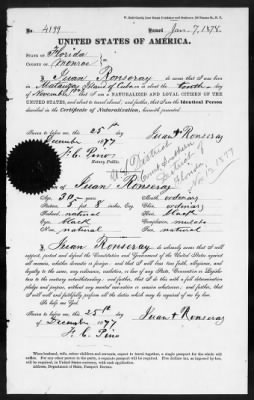 No. 4199 Issued Jan. 7, 1878.
UNITED STATES OF AMERICA.
STATE OF Florida
COUNTY OF Monroe
I, Juan Ronseray do swear that I was born
in Matanzas Island of Cuba on or about the tenth day
of November
that I am a NATURALIZED AND LOYAL CITIZEN OF THE
UNITED STATES, and about to travel abroad; and further, that I am the Identical Person
described in the Certificate of Naturalization, herewith presented.
Sworn to before me, this 25th
day of December 1877
F. C. Pino
Notary Public.
Juan + Ronseray
U.S. District
Court Southern
District of
Florida
1877
Description of Juan Ronseray
Age, 30 years
Mouth, ordinary
Stature, 5 feet 8 inches, Eng.
Chin, ordinary
Forehead, natural
Hair, black
Eyes, black
Complexion, mulato
Nose, natural
Face, natural
I, Juan Ronseray do solemnly swear that I will
support, protect and defend the Constitution and Government of the United States against
all enemies, whether domestic or foreign; and that I will bear true faith, allegiance, and
loyalty to the same, any ordinance, resolution, or law of any State, Convention or Legisla-
ture to the contrary notwithstanding; and further, that I do this with a full determination,
pledge and purpose, without any mental reservation or evasion whatsoever; and further, that
I will well and faithfully perform all the duties which may be required of me by law.
So help me God.
Sworn to before me, this 25th
day of December 1877
F. C. Pino
Juan + Ronseray
When husband, wife, minor children and servants, expect to travel together, a single passport for the whole
will suffice. For any other person in the party a separate passport will be required.
Address, Department of State, Passport Bureau.